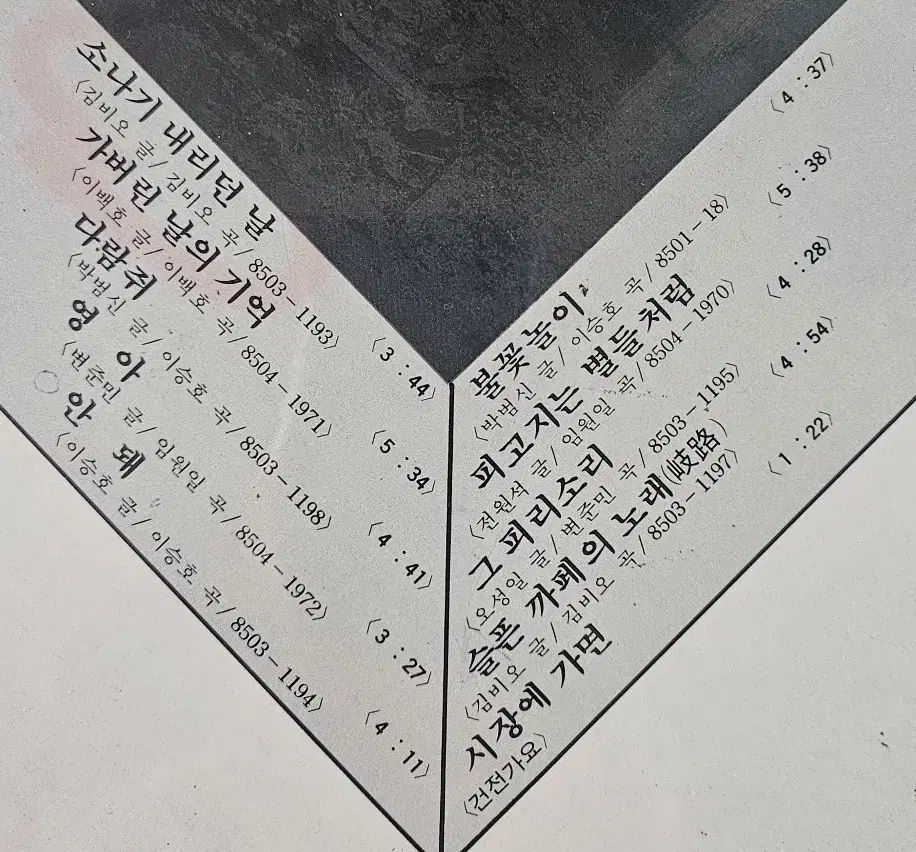 소나기 내리던 날
〈김비오 글/김비오 곡/8503-1193〉 〈3:44〉
가버린 날의 기억
〈이백호 글/이백호 곡/8504-1971〉 〈5:34〉
다람쥐
〈박범신 글/이승호 곡/8503-1198〉 〈4:41〉
영아
〈변준민 글/임원일 곡/8504-1972〉 〈3:27〉
안돼
〈이승호 글/이승호 곡/8503-1194〉 〈4:11〉
불꽃놀이
〈박범신 글/이승호 곡/8501-18〉 〈4:37〉
피고지는 별들처럼
〈전원석 글/임원일 곡/8504-1970〉 〈5:38〉
그 피리소리
〈오성일 글/변준민 곡/8503-1195〉 〈4:28〉
슬픈 까페의 노래(岐路)
〈김비오 글/김비오 곡/8503-1197〉 〈4:54〉
시장에 가면
〈건전가요〉 〈1:22〉